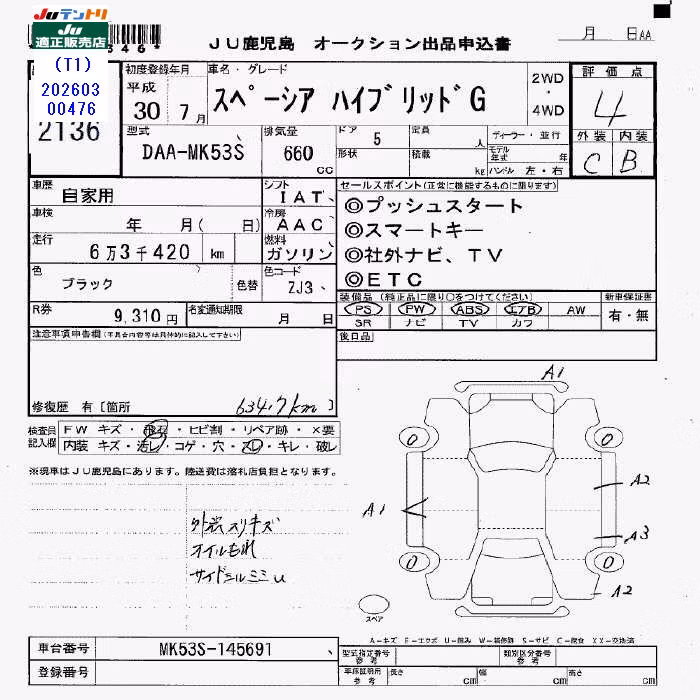 JUテントリ
JU
適正販売店
JU鹿児島 オークション出品申込書
月 日AA
(T1)
202603
00476
2136
初度登録年月
平成
30 7月
車名・グレード
スペーシア ハイブリッドG
2WD
・
4WD
評価点
4
外装 内装
C B
型式
DAA-MK53S
排気量
660
cc
ドア 5
形状
定員 人
積載 kg
ディーラー・並行
モデル年式 年
ハンドル 左・右
車歴
自家用
シフト
IAT
車検
年 月( 日)
冷房
AAC
走行
6万3千420 km
燃料
ガソリン
色
ブラック
色替
色コード
ZJ3
R券
9,310円
名変通知期限
月 日
セールスポイント(正常に機能するものに限ります)
◎プッシュスタート
◎スマートキー
◎社外ナビ、TV
◎ETC
装備品 (純正品に限り○をつけてください)
新車保証書
PS PW ABS エアB AW
SR ナビ TV カワ
有・無
後日品
注意事項申告欄
修復歴 有〔箇所 〕
634.7km
検査員
記入欄
FW キズ・飛石・ヒビ割・リペア跡・×要
内装 キズ・汚レ・コゲ・穴・スレ・キレ・破レ
※現車はJU鹿児島にあります。陸送費は落札店負担となります。
外装スリキズ
オイルもれ
サイドシルミミU
A1
A1
A2
A3
A2
0
0
0
0
スペア
A-キズ E-エクボ U-凹み W-補修跡 S-サビ C-腐食 XX-交換済
車台番号
MK53S-145691
登録番号
型式指定番号
参考
類別区分番号
参考
車庫証明用
参考
長さ cm
幅 cm
高さ cm